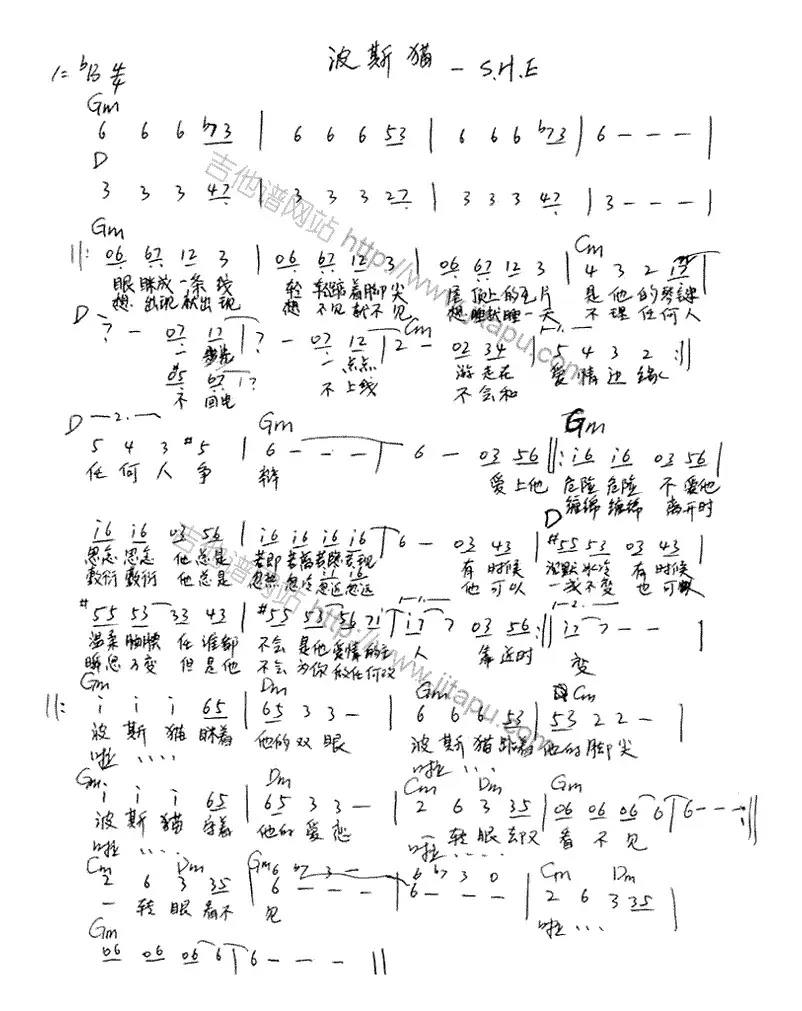 波斯猫 - S.H.E
1=bB 4/4
Gm
6 6 6 b73 | 6 6 6 53 | 6 6 6 b73 | 6 - - - |
D
3 3 3 47 | 3 3 3 27 | 3 3 3 47 | 3 - - - |
Gm Cm
||: 06 67 12 3 | 06 67 12 3 | 06 67 12 3 | 4 3 2 17 |
眼睐成一条线 轻轻踮着脚尖 屋顶上的瓦片 是他的琴键
想出现就出现 想不见就不见 想睡就睡一天 不理任何人
D Cm 1.
7 - 07 17 | 7 - 07 12 | 2 - 02 34 | 5 4 3 2 :||
一步步 一点点 游走在 爱情边缘
#05 67 | 7
不回电 不上线 不会和
D 2. Gm Gm
5 4 3 #5 | 6 - - - | 6 - 03 56 ||: i6 i6 03 56 |
任何人争 辩 爱上他 危险危险 不爱他
缠绵缠绵 离开时
D
i6 i6 03 56 | i6 i6 i6 i6 | 6 - 03 43 | #55 53 03 43 |
思念思念 他总是 若即若离若隐若现 有时候 沉默冰冷 有时候
敷衍敷衍 他总是 忽热忽冷忽近忽远 他可以 一成不变 也可以
1. 2.
#55 53 33 43 | #55 53 56 71 | 17 7 03 56 :|| 17 7 - - |
温柔腼腆 任谁都 不会是他爱情的主 人 靠近时 变
瞬息万变 但是他 不会为你做任何改
Gm Dm Gm Cm
||: i i i 65 | 65 3 3 - | 6 6 6 53 | 53 2 2 - |
波斯猫眯着 他的双眼 波斯猫踮着 他的脚尖
啦.... 啦....
Gm Dm Cm Dm Gm
i i i 65 | 65 3 3 - | 2 6 3 35 | 06 06 06 6 | 6 - - - :||
波斯猫守着 他的爱恋 一转眼却又 看不见
啦.... 啦....
Cm Dm Gm Cm Dm
6 b7 3 - 6 b7 3 0
2 6 3 35 | 6 - - - | 6 - - - | 2 6 3 35 |
一转眼看不 见 啦...
Gm
06 06 06 6 | 6 - - - ||
吉他谱网站 http://www.jitapu.com
吉他谱网站 http://www.jitapu.com